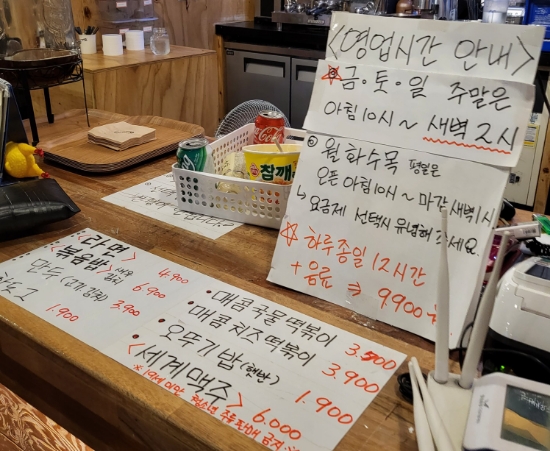 <영업시간 안내>
금·토·일 주말은
아침 10시 ~ 새벽 2시
월화수목 평일은
오픈 아침 10시 ~ 마감 새벽 1시
↳ 요금제 선택시 유념해 주세요.
☆ 하루종일 12시간
+ 음료 ⇒ 9900
참깨
라면> 4.900
볶음밥> 새우 6.900
만두 3.900
1.900
매콤 국물떡볶이 3.500
매콤 치즈떡볶이 3.900
오뚜기 밥 (햇반) 1.900
<세계맥주> 6.000
※ 19세 미만 청소년 주류 판매 금지